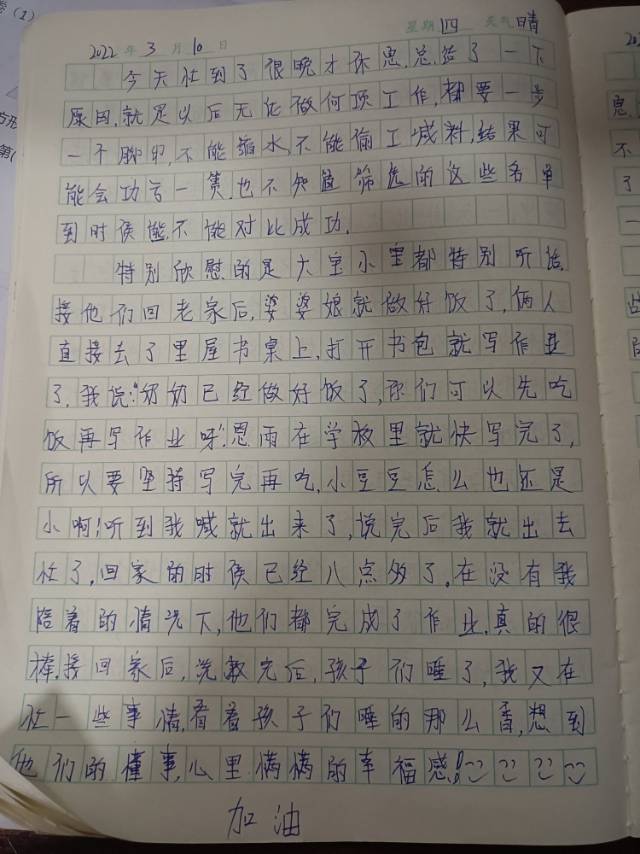 2022年3月10日 星期四 天气晴
今天忙到了很晚才休息,总结了一下
原因,就是以后无论做何项工作,都要一步
一个脚印,不能缩水,不能偷工减料,结果可
能会功亏一篑,也不知道筛选的这些名单
到时候能不能对比成功.
特别欣慰的是大宝小宝都特别听话.
接他们回老家后,婆婆娘就做好饭了,俩人
直接去了里屋书桌上,打开书包就写作业
了.我说:“奶奶已经做好饭了,你们可以先吃
饭再写作业呀”.恩雨在学校里就快写完了,
所以要坚持写完再吃,小豆豆怎么也还是
小啊!听到我喊就出来了,说完后我就出去
忙了,回家的时候已经八点多了,在没有我
陪着的情况下,他们都完成了作业.真的很
棒.接回家后,洗漱完后,孩子们睡了,我又在
忙一些事情,看着孩子们睡的那么香,想到
他们的懂事,心里满满的幸福感!
加油